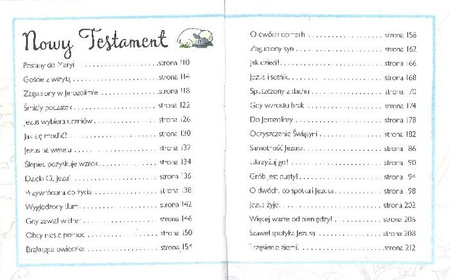 Nowy Testament
Posłany do Maryi . . . . . . . . . . strona 110
Goście z wizytą . . . . . . . . . . strona 114
Zagubiony w Jerozolimie . . . . . . . . . . strona 118
Śmiały początek . . . . . . . . . . strona 122
Jezus wybiera uczniów . . . . . . . . . . strona 126
Jak się modlić? . . . . . . . . . . strona 130
Jezus na weselu . . . . . . . . . . strona 132
Ślepiec odzyskuje wzrok . . . . . . . . . . strona 134
Dzięki Ci, Jezu! . . . . . . . . . . strona 136
Przywrócona do życia . . . . . . . . . . strona 138
Wygłodzony tłum . . . . . . . . . . strona 142
Gdy zawył wicher . . . . . . . . . . strona 146
Obcy niesie pomoc . . . . . . . . . . strona 150
Brakująca owieczka . . . . . . . . . . strona 154
O dwóch domach . . . . . . . . . . strona 158
Zagubiony syn . . . . . . . . . . strona 162
Jak dzieci! . . . . . . . . . . strona 166
Jezus i setnik . . . . . . . . . . strona 168
Spuszczony z dachu . . . . . . . . . . strona 170
Gdy wzrostu brak . . . . . . . . . . strona 174
Do Jerozolimy . . . . . . . . . . strona 178
Oczyszczenie Świątyni . . . . . . . . . . strona 182
Samotność Jezusa . . . . . . . . . . strona 186
Ukrzyżuj go! . . . . . . . . . . strona 190
Grób jest pusty! . . . . . . . . . . strona 194
O dwóch, co spotkali Jezusa . . . . . . . . . . strona 198
Jezus żyje . . . . . . . . . . strona 202
Więcej warte od pieniędzy! . . . . . . . . . . strona 206
Szaweł spotyka Jezusa . . . . . . . . . . strona 208
Trzęsienie ziemi . . . . . . . . . . strona 212